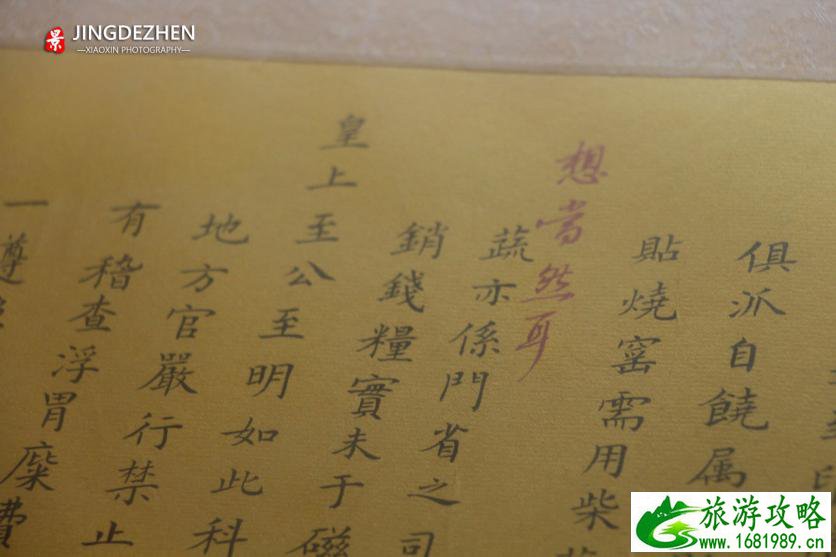 景 JINGDEZHEN
—XIAOXIN PHOTOGRAPHY—
俱派自饒属
貼燒窑需用柴
想當然耳
蔬亦係門省之司
銷錢糧實未于磁
皇上至公至明如此科
地方官嚴行禁止
有稽查浮冐糜費
一遵
旅游攻略
www.1681989.cn